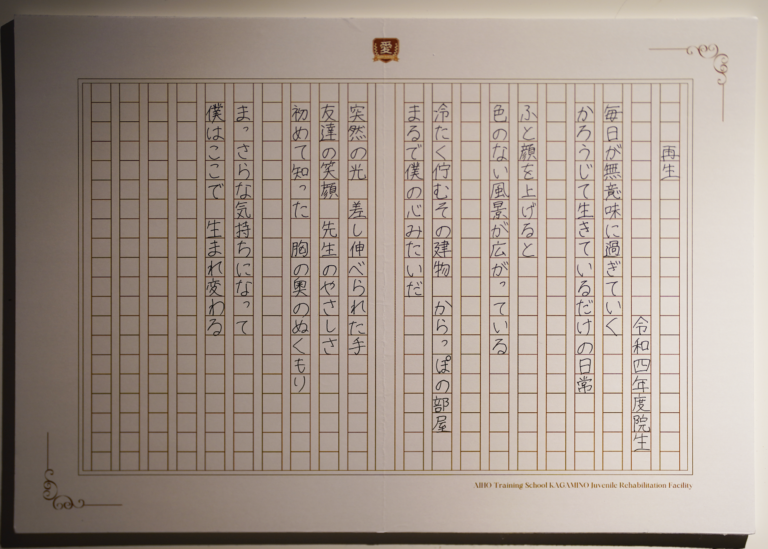 愛
再生
令和四年度院生
毎日が無意味に過ぎていく
かろうじて生きているだけの日常
ふと顔を上げると
色のない風景が広がっている
冷たく佇むその建物　からっぽの部屋
まるで僕の心みたいだ
突然の光　差し伸べられた手
友達の笑顔　先生のやさしさ
初めて知った　胸の奥のぬくもり
まっさらな気持ちになって
僕はここで　生まれ変わる
AIHO Training School KAGAMINO Juvenile Rehabilitation Facility